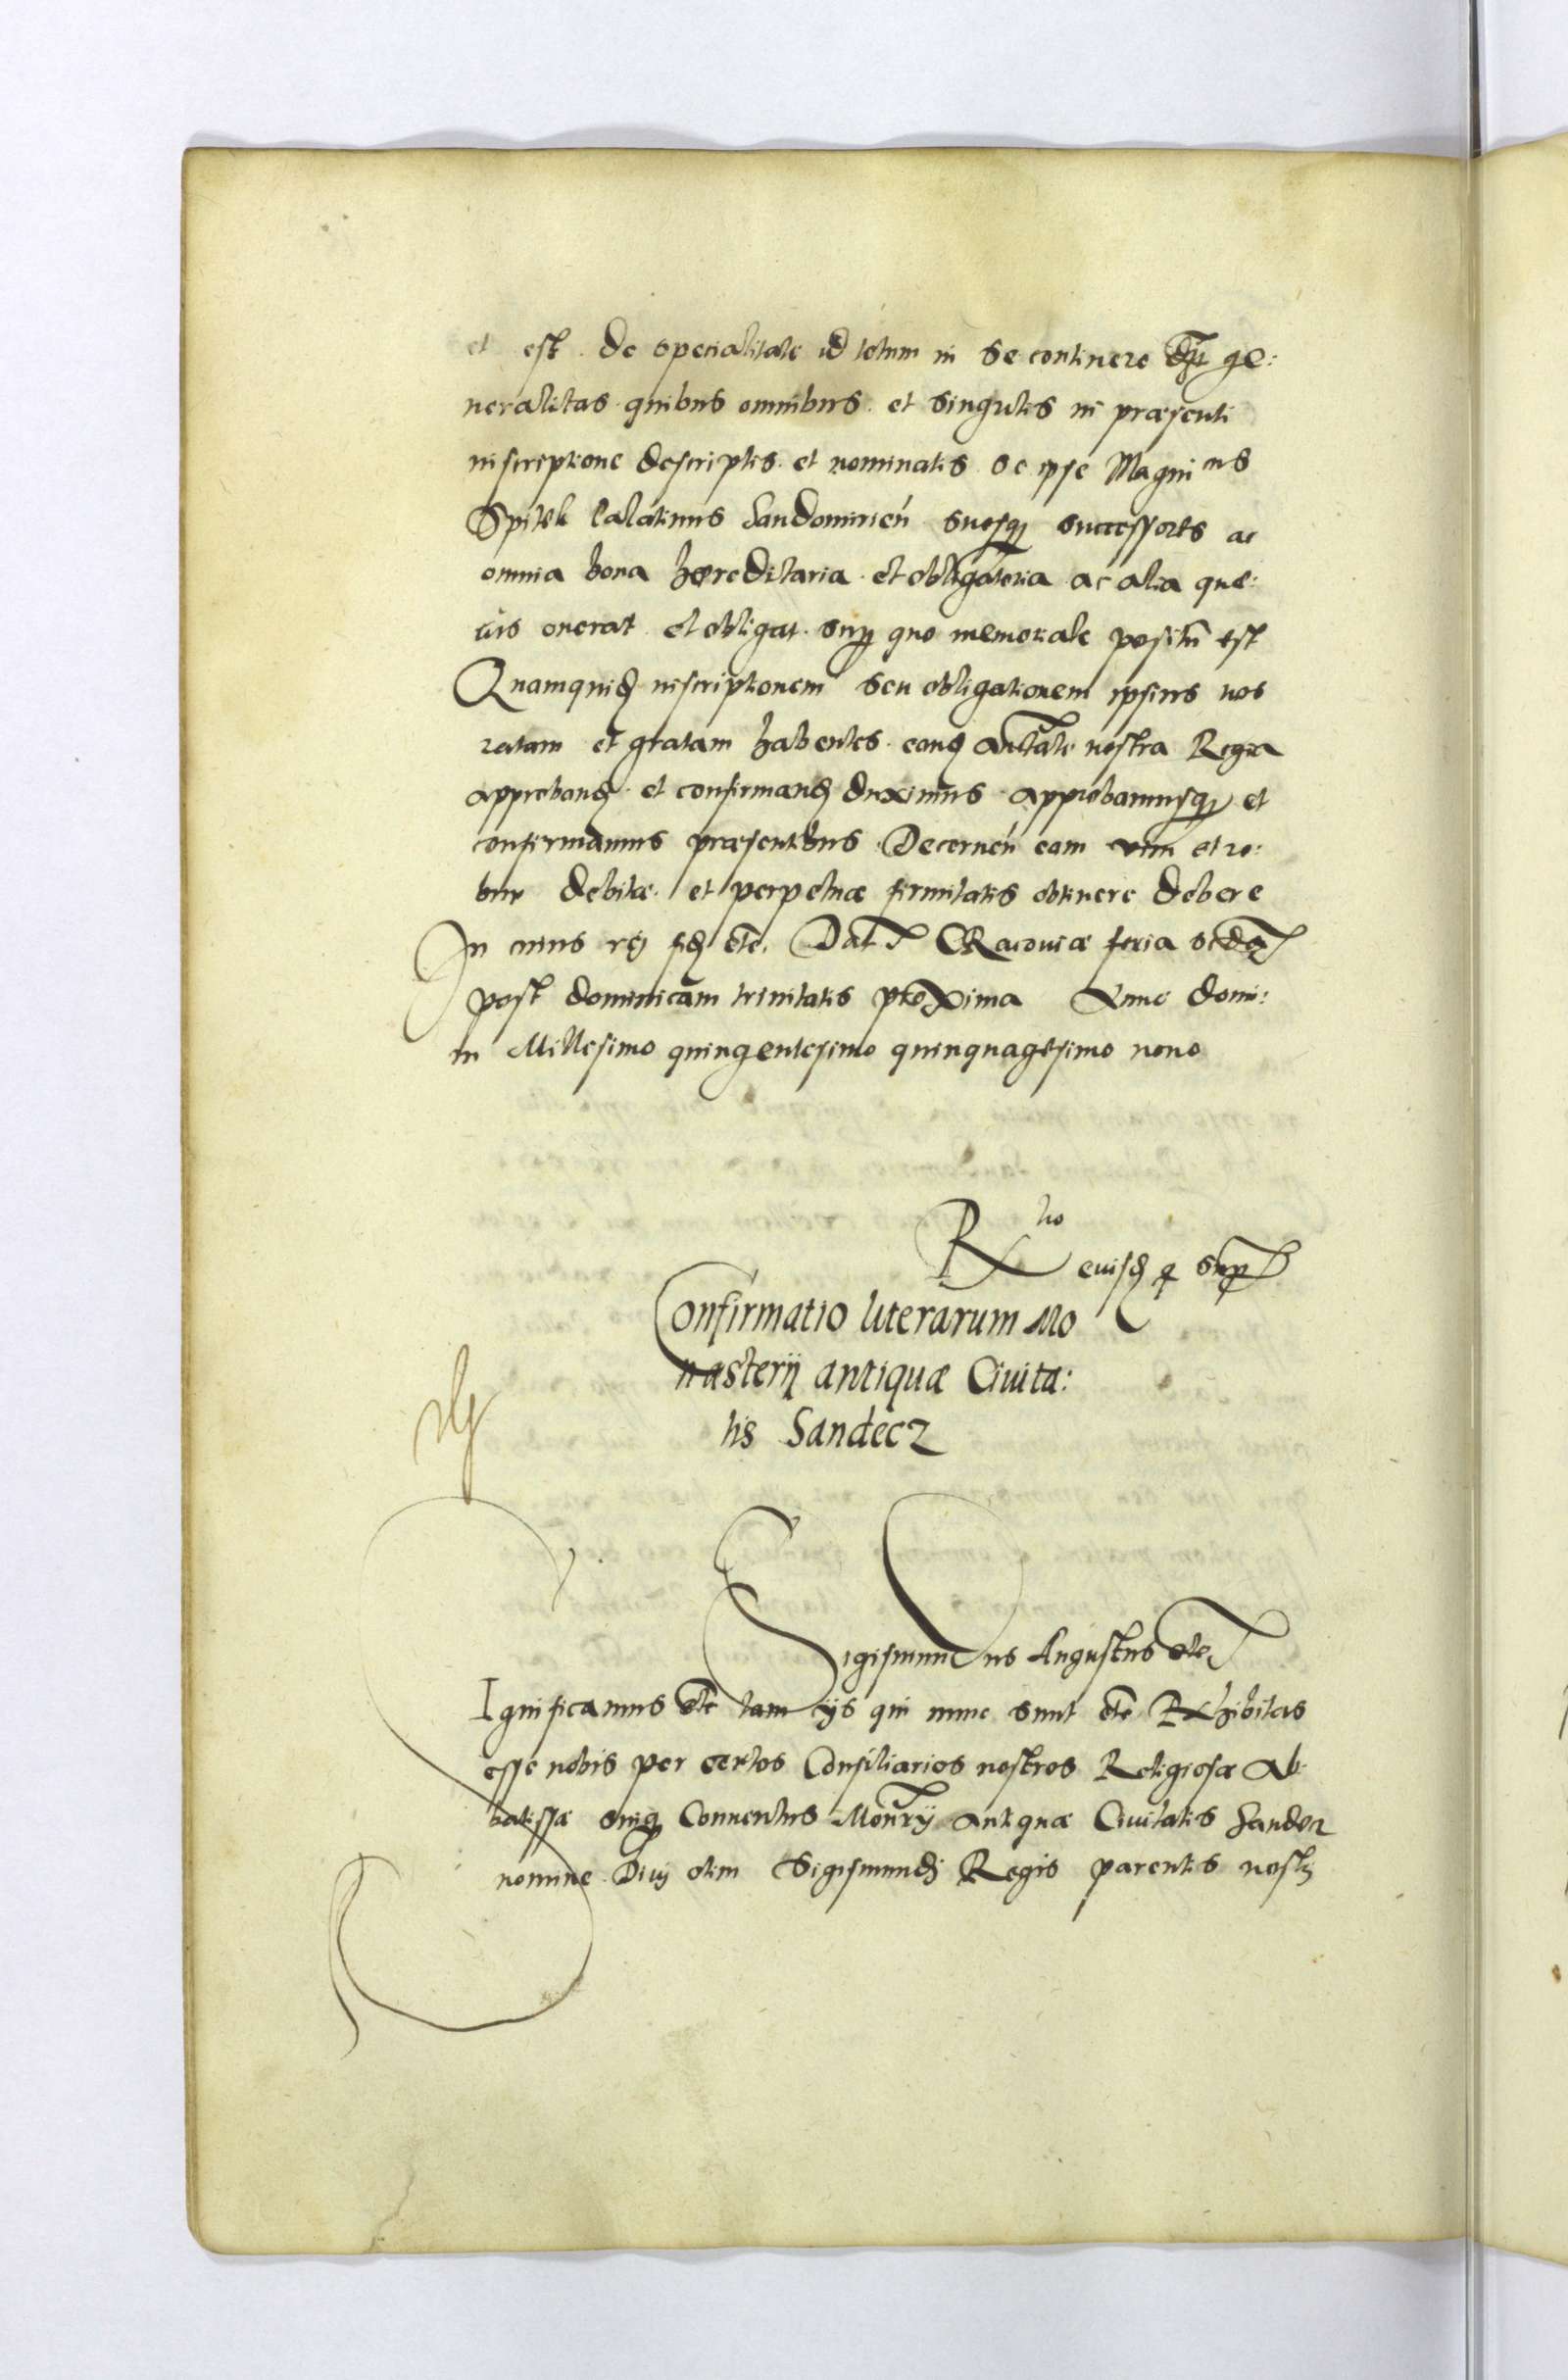 et est. de specialitate id totum in se continere d... ge:
neralitas quibus omnibus et singulis in præsenti
inscriptione descriptis et nominatis se ipse Magnicus
Spitek Palatinus Sandomirien suosq successores ac
omnia bona hæreditaria et obligatoria ac alia quæ:
vis onerat et obligat sup quo memoriale positū est
Quamquid inscriptionem seu obligationem ipsius nos
ratam et gratam habentes eand authate nostra Regia
approband et confirmand duximus approbamusq et
confirmamus præsentibus Decernen eam vim et ro:
bur debitæ et perpetuæ firmitatis obtinere debere
In cuius rei fid etc. Dat CRacouiæ feria scda
post dominicam trinitatis proxima Anno domi:
ni Millesimo quingentesimo quinquagesimo nono
Rtio eiusd q sup
Confirmatio literarum Mo
nasterij antiquæ Ciuita:
tis Sandecz
Sigismundus Augustus etc
Ignificamus etc tam ijs qui nunc sunt etc Exhibitas
esse nobis per certos Consiliarios nostros Religiosæ Ab
batissæ suiq Conuentus Monrij antiquæ Ciuitatis Sandecz
nomine Diui olim Sigismundi Regis parentis nostri